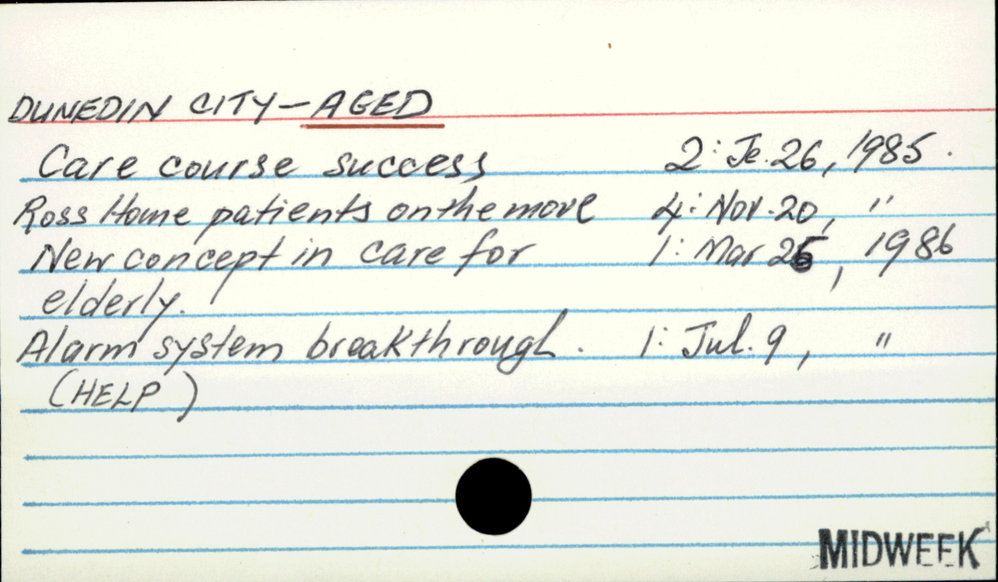 DUNEDIN CITY - AGED
Care course success 2: Je. 26, 1985.
Ross Home patients on the move 4: Nov. 20, "
New concept in care for 1: Mar 26, 1986
elderly.
Alarm system breakthrough. 1: Jul. 9, "
(HELP)
MIDWEEK